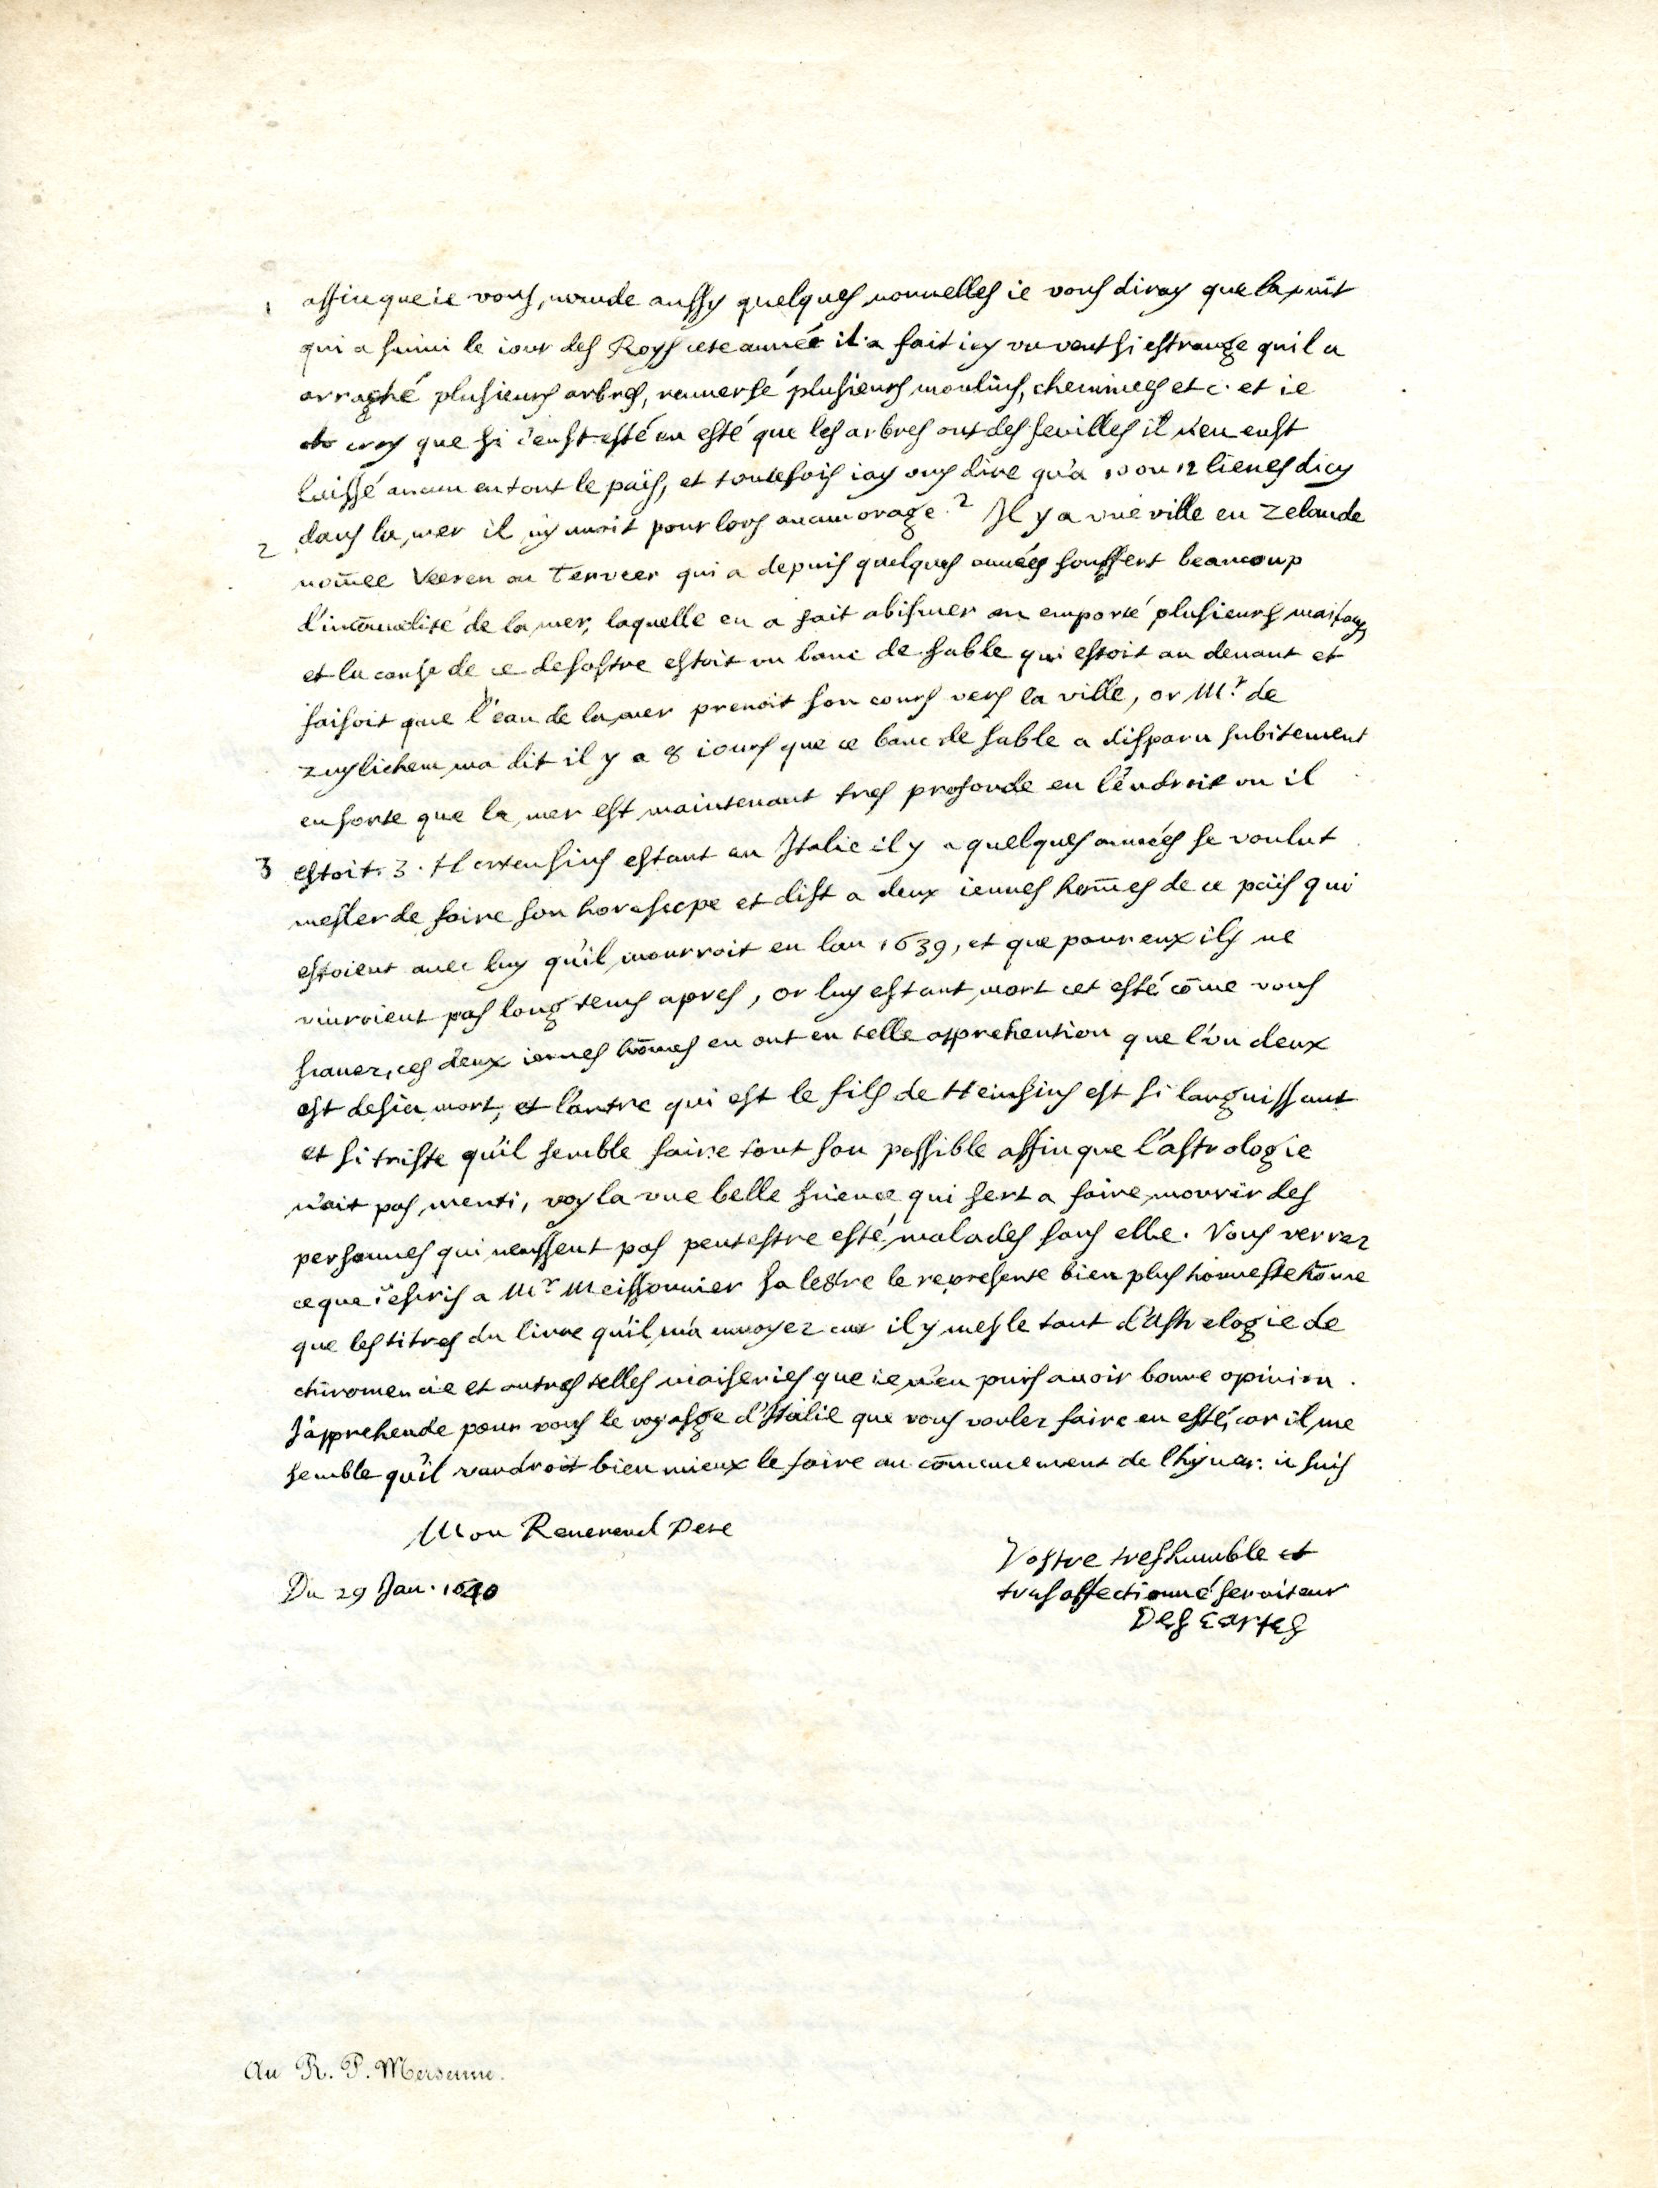 1 affin que ie vous mande aussy quelques nouuelles ie vous diray que la nuit
qui a suiui le iour des Roys cete année il a fait icy vn vent si estrange quil a
arraché plusieurs arbres, renuersé plusieurs moulins, cheminees etc. et ie
croy que si c'eust esté en esté que les arbres ont des feuilles il n'en eust
laissé aucun en tout le païs, et toutefois iay ouy dire qu'a 10 ou 12 lieues dicy
dans la mer il ny auoit pour lors aucun orage. 2 Il y a vne ville en Zelande
2 nom̄ee Veeren ou Terveer qui a depuis quelques années souffert beaucoup
d'incom̄odité de la mer, laquelle en a fait abismer ou emporté plusieurs maisons
et la cause de ce desastre estoit vn banc de sable qui estoit au deuant et
faisoit que l'eau de la mer prenoit son cours vers la ville, or Mr. de
zuylichem ma dit il y a 8 iours que ce banc de sable a disparu subitement
en sorte que la mer est maintenant tres profonde en l'endroit ou il
3 estoit. 3. Hortensius estant en Italie il y a quelques années se voulut
mesler de faire son horoscope et dist a deux ieunes hom̄es de ce païs qui
estoient auec luy qu'il mourroit en lan 1639, et que pour eux ils ne
viuroient pas long tems apres, or luy estant mort cet esté, com̄e vous
scauez, ces deux ieunes hom̄es en ont eu telle apprehention que l'vn deux
est desia mort, et l'autre qui est le fils de Heinsius est si languissant
et si triste qu'il semble faire tout son possible affin que l'astrologie
n'ait pas menti, voyla vne belle science qui sert a faire mourir des
personnes qui neussent pas peutestre esté malades sans elle. Vous verrez
ce que i'escris a Mr Meissonnier sa lettre le represente bien plus honneste hom̄e
que les titres du liure qu'il m'a enuoyez car il y mesle tant d'Astrologie de
chiromencie et autres telles niaiseries que ie n'en puis auoir bonne opinion.
J'apprehende pour vous le voyasge d'Italie que vous voulez faire en esté, car il me
semble qu'il vaudroit bien mieux le faire au com̄encement de lhyuer. ie suis
Mon Reuerend Pere
Vostre treshumble et
tres affectionné seruiteur
Des Cartes
Du 29 Jan. 1640
Au R. P. Mersenne.